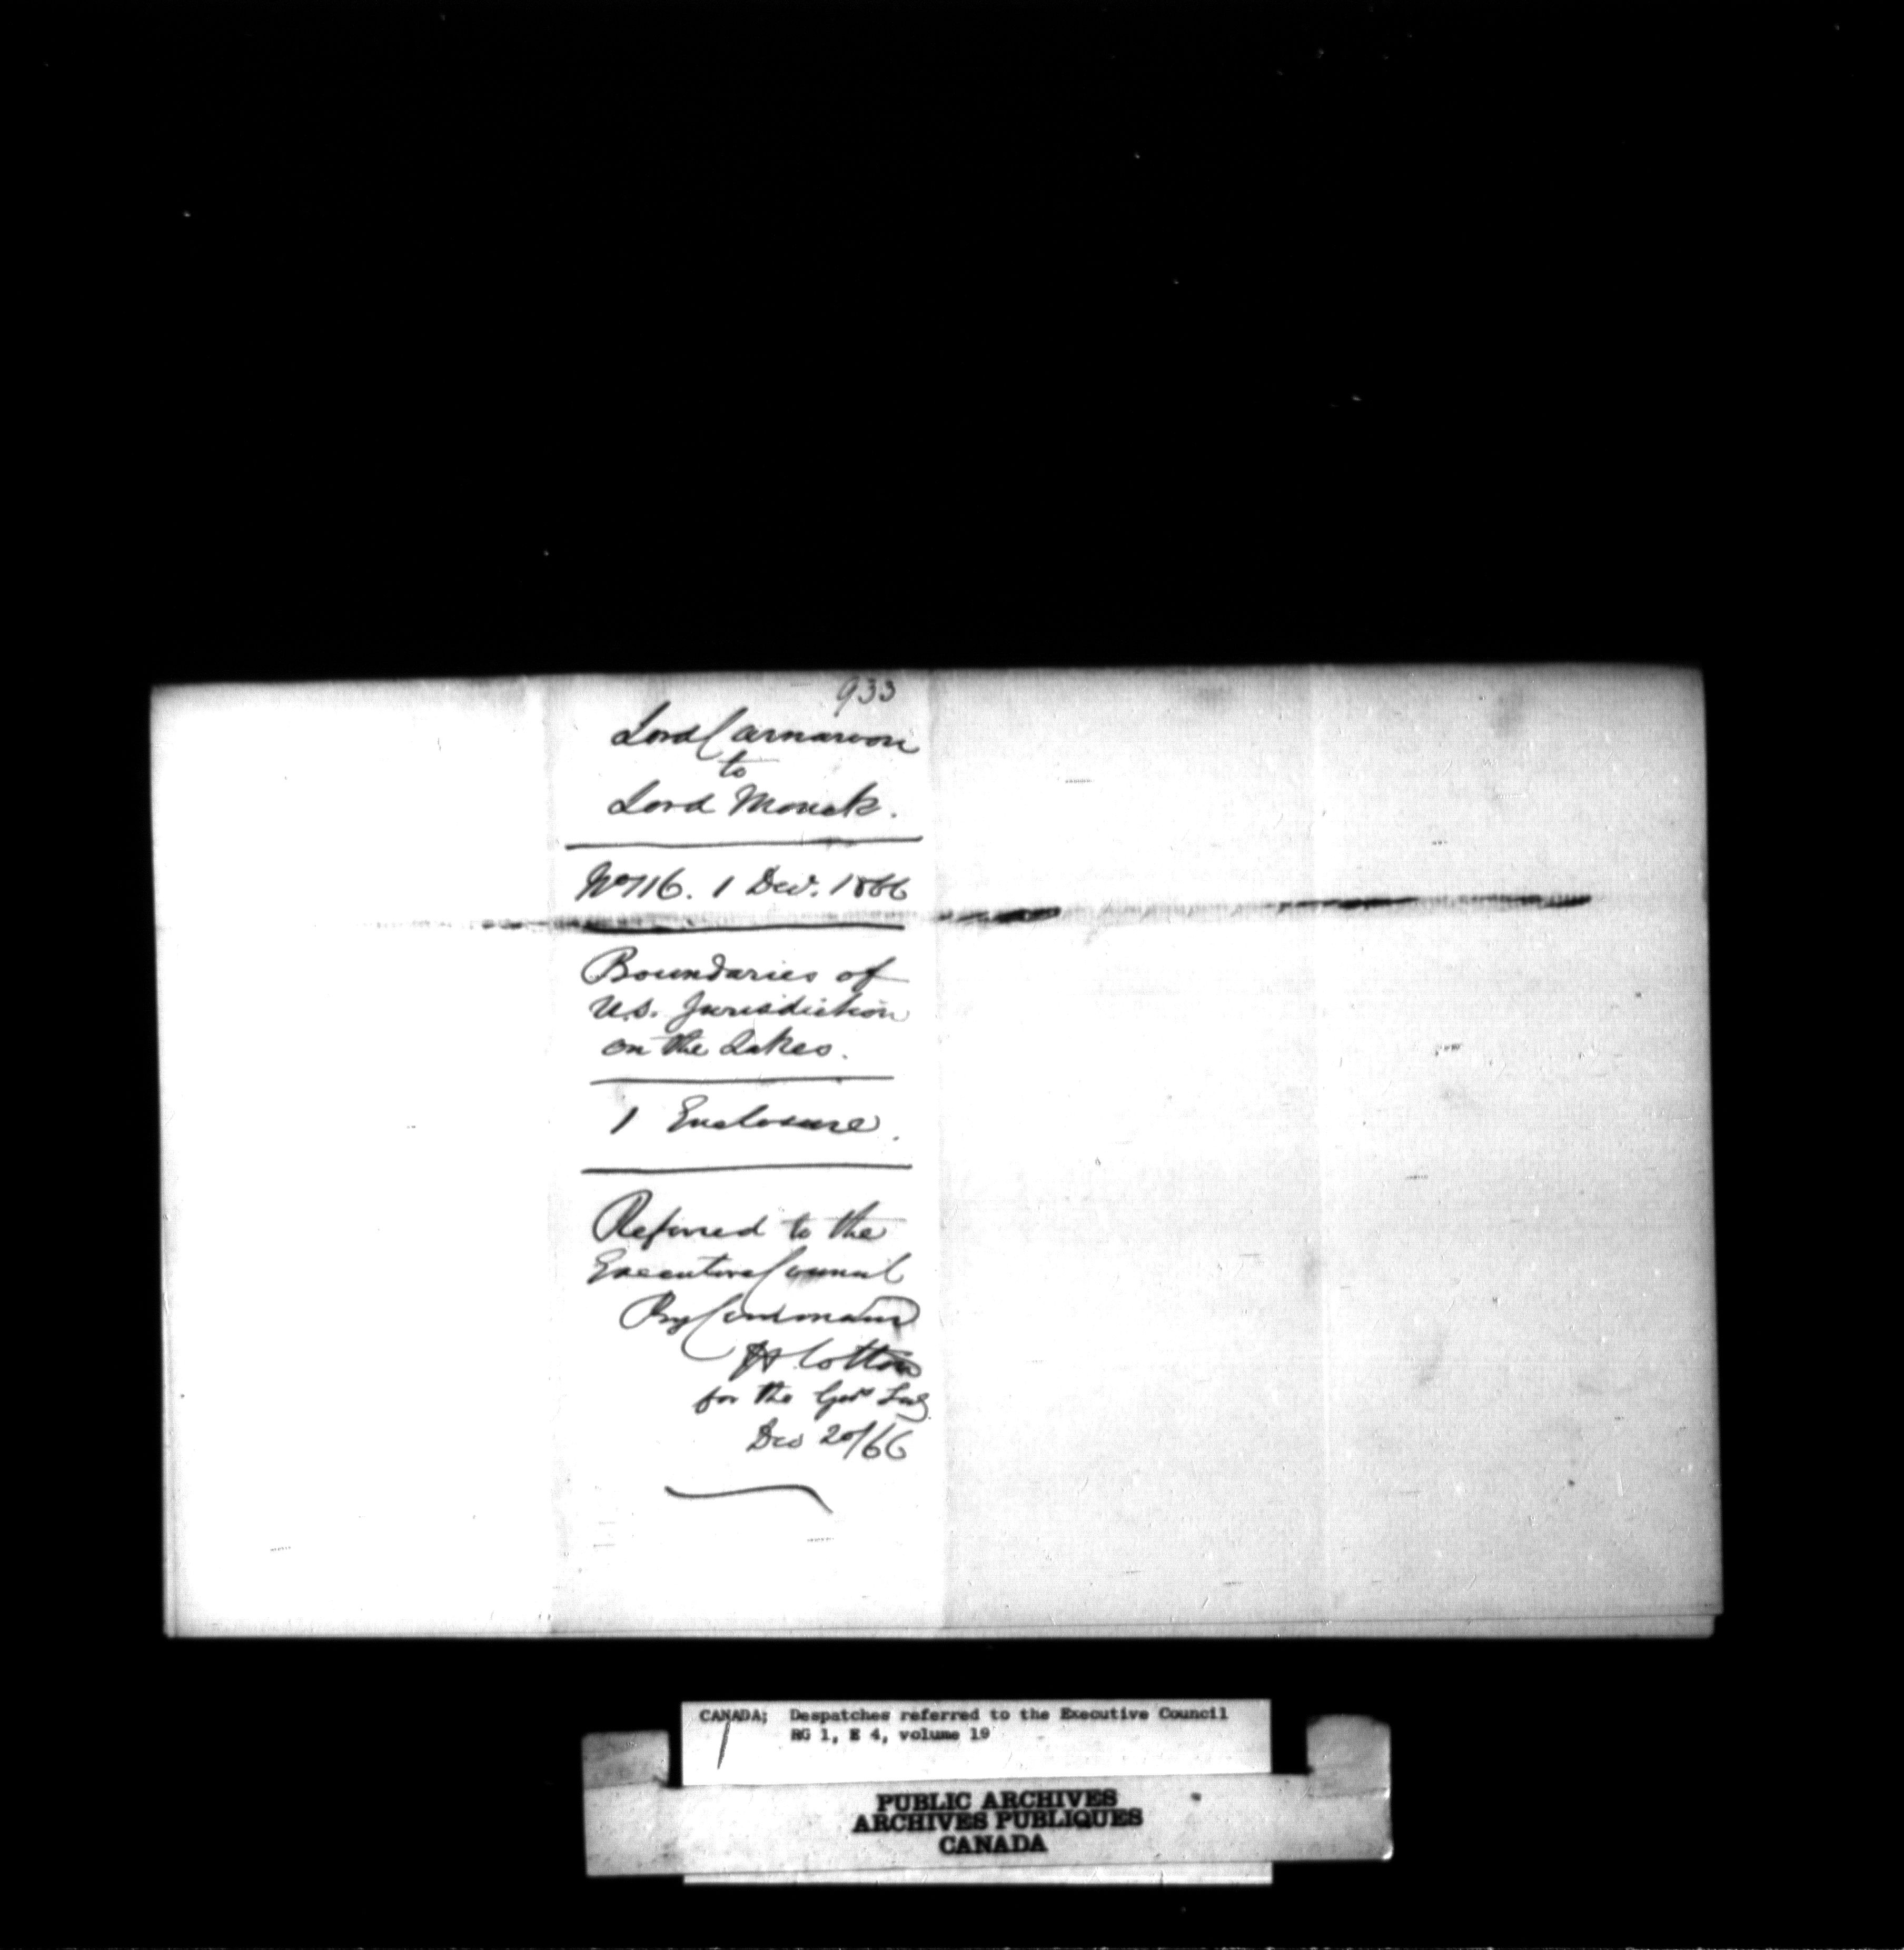 933
Lord Carnarvon
to
Lord Monck.
No 116. 1 Decr. 1866
Boundaries of
U.S. Jurisdiction
on the Lakes.
1 Enclosure.
Referred to the
Executive Council
By Command
H Cotton
for the Govr Secy
Dec 20/66
CANADA; Despatches referred to the Executive Council
RG 1, E 4, volume 19
PUBLIC ARCHIVES
ARCHIVES PUBLIQUES
CANADA